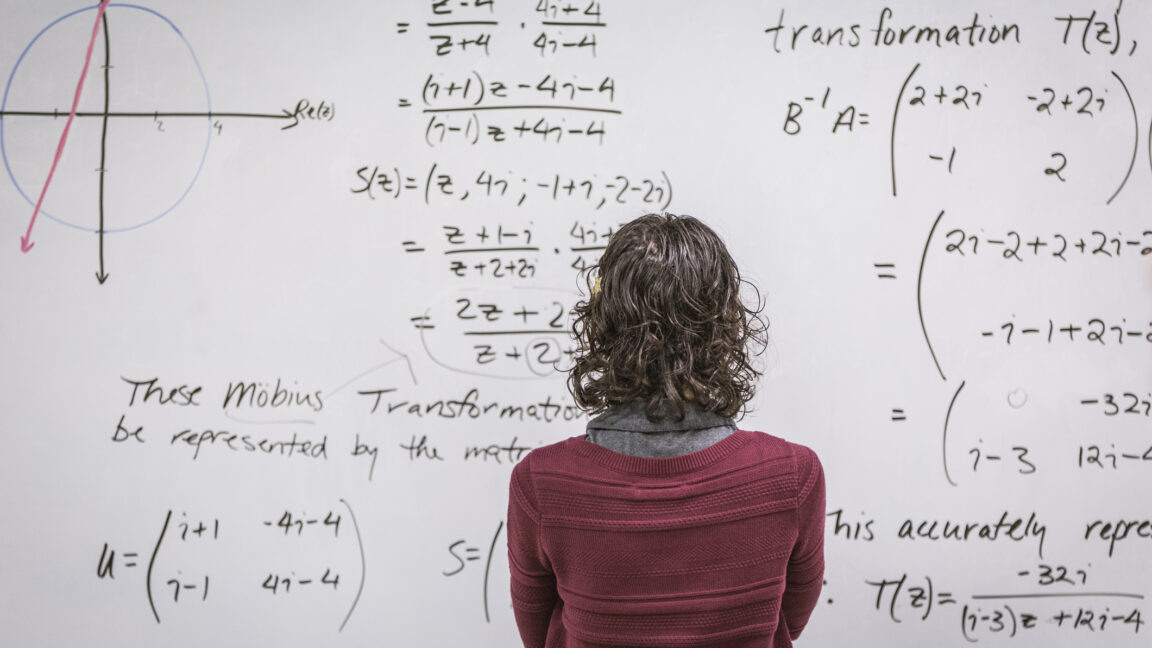 Re(z)
2 4
= z-4/z+4 · 4i+4/4i-4
= (i+1)z-4i-4/(i-1)z+4i-4
S(z)=(z, 4i; -1+i, -2-2i)
= z+1-i/z+2+2i ·
= 2z+2
z+2
These Möbius Transformation
be represented by the
U= (i+1 -4i-4
i-1 4i-4)
S=(
transformation T(z),
B⁻¹A= (2+2i -2+2i
-1 2)
= (2i-2+2+2i-2
-i-1+2i-2
= (0 -32i
i-3 12i-4
This accurately
T(z)= -32i/(i-3)z+12i-4